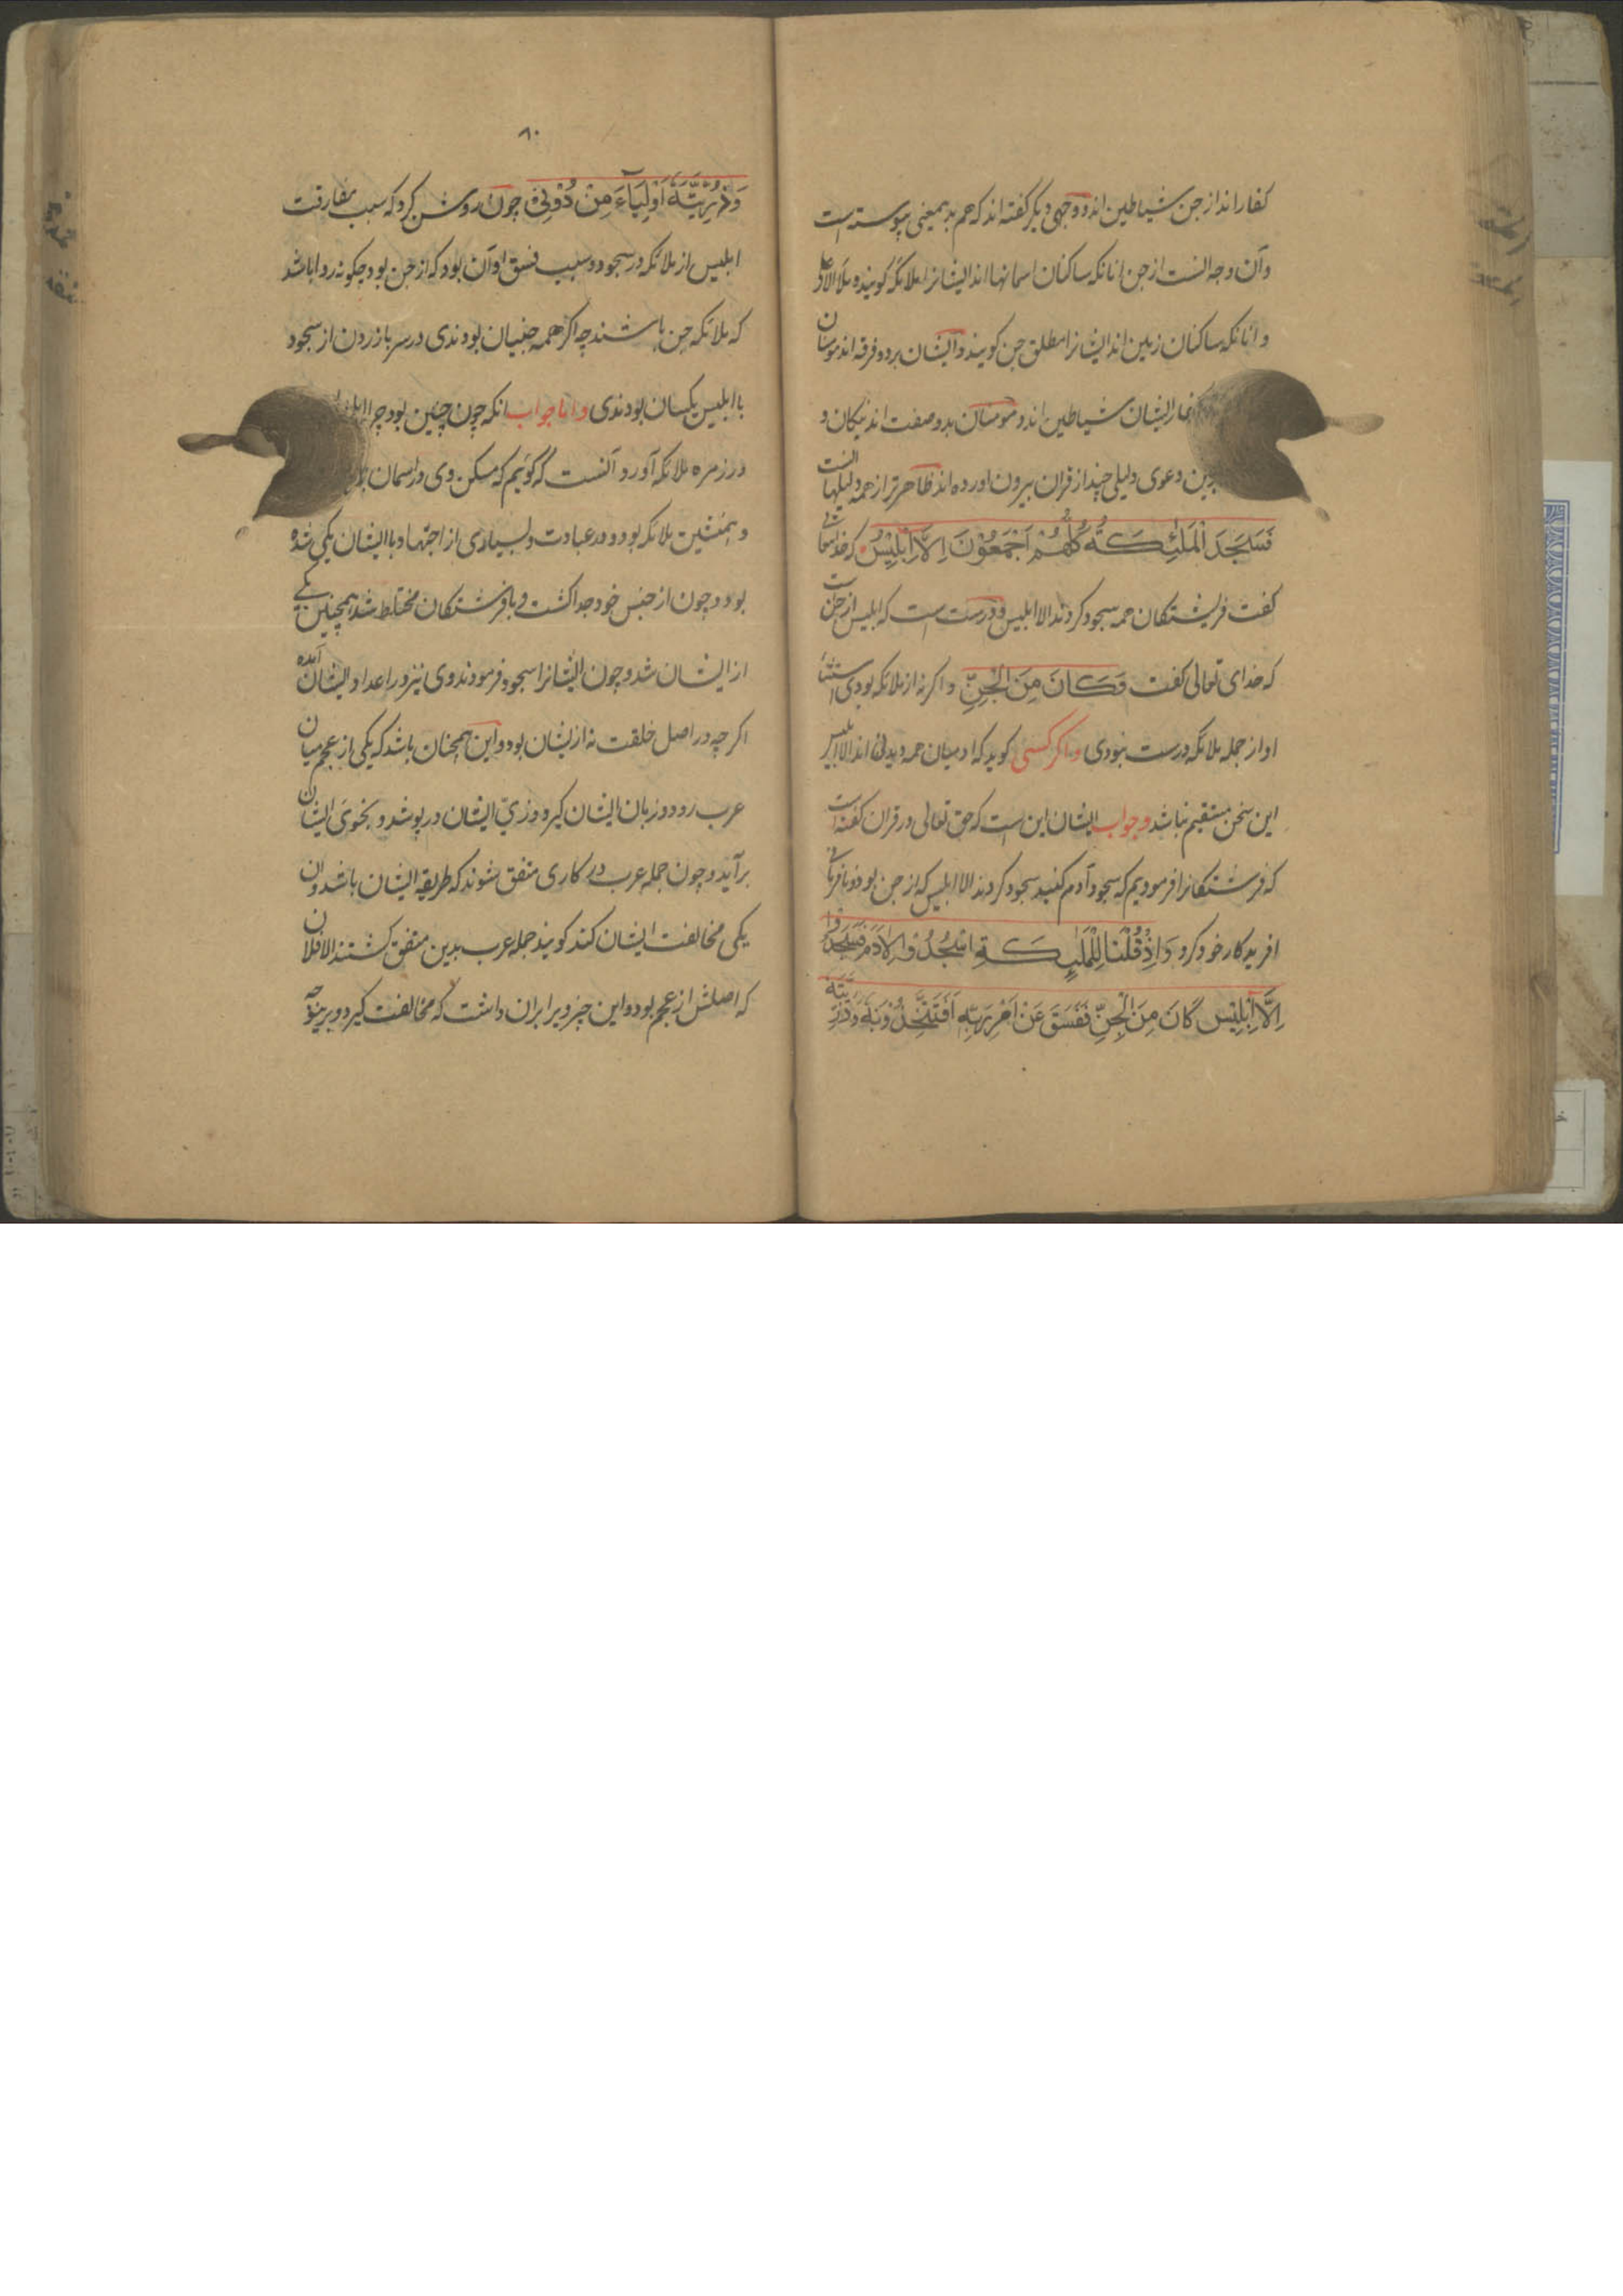 کفار اند از جن شیاطین اند و وجهی دیگر گفته اند که هم بدبمعنی پیوسته است
و آن وجه انست از جن انانکه ساکنان اسمانها اند ایشانرا ملائکه گویند و ملأ الاعلی
و انانکه ساکنان زمین اند ایشانرا مطلق جن گویند و ایشان بر دو فرقه اند مومنان
کفار ایشان شیاطین اند و مومنان بدو صفت اند نیکان و
بدین دعوی دلیلی چند از قران بیرون اورده اند ظاهرتر از همه دلیلها انست
فَسَجَدَ الْمَلٰئِكَةُ كُلُّهُمْ اَجْمَعُوْنَ اِلَّا اِبْلِیْسَ که خدایتعالی
گفت فریشتکان همه سجود کردند الا ابلیس و درست است که ابلیس از جن است
که خدای تعالی گفت وَكَانَ مِنَ الْجِنِّ و اکر نه از ملائکه بودی استثناء
او از جمله ملائکه درست نبودی و اگر کسی کوید که ادمیان همه دیدنی اند الا ابلیس
این سخن مستقیم نباشد و جواب ایشان این است که حق تعالی در قران گفته است
که فرشتکانرا فرمودیم که سجود آدم کنید سجود کردند الا ابلیس که از جن بود و نافرمانی
افریدکار خود کرد وَاِذْ قُلْنَا لِلْمَلٰئِكَةِ اسْجُدُوْا لِاٰدَمَ فَسَجَدُوْا
اِلَّا اِبْلِیْسَ كَانَ مِنَ الْجِنِّ فَفَسَقَ عَنْ اَمْرِ رَبِّهٖ اَفَتَتَّخِذُوْنَهٗ وَذُرِّیَّتَهٗ
۸۰
وَذُرِّیَّتَهٗ اَوْلِیَآءَ مِنْ دُوْنِیْ چون روشن کرد که سبب مفارقت
ابلیس از ملائکه در سجود و سبب فسق او آن بود که از جن بود چکونه روا باشد
که ملائکه جن باشند چه اکر همه جنیان بودندی در سر باز زدن از سجود
با ابلیس یکسان بودندی و اما جواب انکه چون چنین بود چرا
در زمره ملائکه آورد آنست که گوئیم که مسکن وی در اسمان
و همنشین ملائکه بود و در عبادت و بسیاری از اجتهاد با ایشان یکی شده
بود و چون از جنس خود جدا کشت و با فرشتکان مختلط شد همچنین یکی
از ایشان شد و چون ایشانرا سجود فرمودند وی نیز در اعداد ایشان آمده
اکر چه در اصل خلقت نه از یشان بود و این همچنان باشد که یکی از عجم میان
عرب رود و زبان ایشان گیرد و زیّ ایشان در پوشد و بخوی ایشان
برآید و چون جمله عرب در کاری متفق شوند که طریقه ایشان باشد و ان
یکی مخالفت ایشان کند کویند جمله عرب بدین متفق کشتند الا فلان
که اصلش از عجم بود و این چیز ویرا بران داشت که مخالفت کیرد